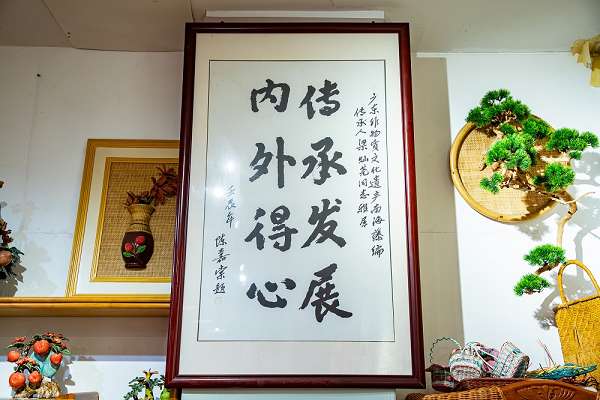 广东非物质文化遗产南海藤编
传承人梁灿尧同志雅
传承发展
内外得心
壬辰年
陈嘉题